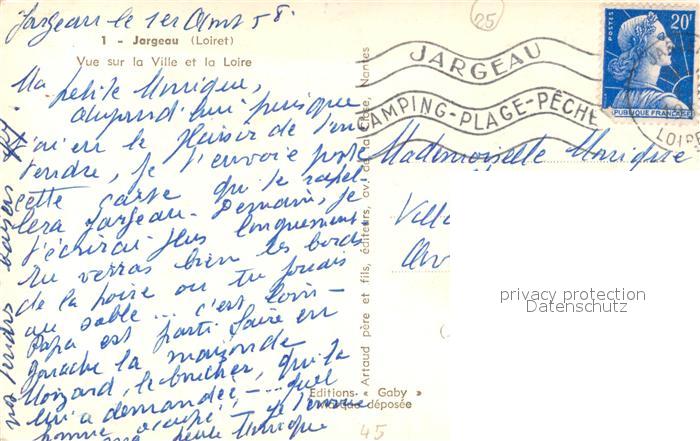 Jargeau le 1er Août 58.
1 - Jargeau (Loiret)
Vue sur la Ville et la Loire
Ma petite Monique,
aujourd'hui puisque
j'ai eu le plaisir de t'en
tendre, je t'envoie
cette carte qui te rappel-
lera Jargeau. Demain, je
t'écrirai plus longuement.
Tu verras bien les bords
de la Loire où tu jouais
au sable ... c'est loin -
Papa est parti faire en
la maison de
le boucher, qui la
lui a demandée - ... quel
homme occupé!
petite Monique
nos tendres baisers
Artaud père et fils, éditeurs, av. de la Loire, Nantes
Editions "Gaby"
Marque déposée
25
JARGEAU
CAMPING-PLAGE-PÊCHE
POSTES
20F
POSTE FRANÇAISE
LOIRET
Mademoiselle Monique
Villa
privacy protection
Datenschutz
45